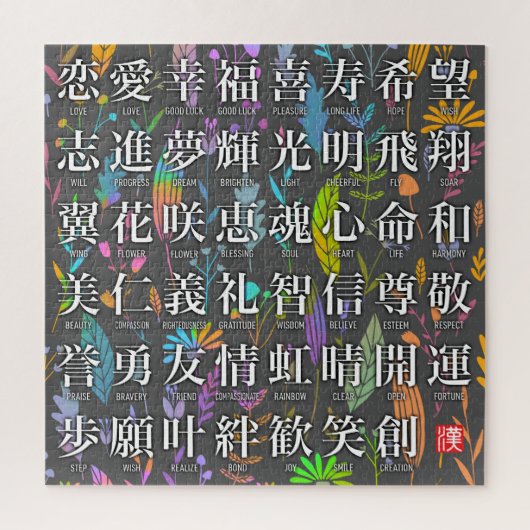 恋 愛 幸 福 喜 寿 希 望
LOVE LOVE GOOD LUCK GOOD LUCK PLEASURE LONG LIFE HOPE WISH
志 進 夢 輝 光 明 飛 翔
WILL PROGRESS DREAM BRIGHTEN LIGHT CHEERFUL FLY SOAR
翼 花 咲 恵 魂 心 命 和
WING FLOWER FLOWER BLESSING SOUL HEART LIFE HARMONY
美 仁 義 礼 智 信 尊 敬
BEAUTY COMPASSION RIGHTEOUSNESS GRATITUDE WISDOM BELIEVE ESTEEM RESPECT
誉 勇 友 情 虹 晴 開 運
PRAISE BRAVERY FRIEND COMPASSIONATE RAINBOW CLEAR OPEN FORTUNE
歩 願 叶 絆 歓 笑 創 漢
STEP WISH REALIZE BOND JOY SMILE CREATION